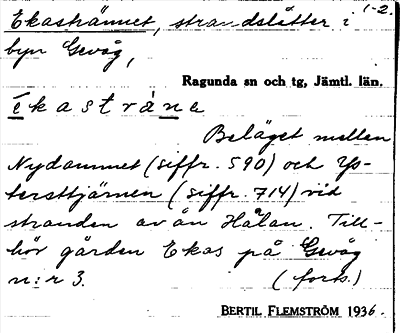 Ekastrännet, strandslåtter i 1-2.
byn Gevåg,
Ragunda sn och tg, Jämtl. län.
ḗkastràne
Beläget mellan
Nydammet (siffr. 590) och Ys-
tersttjärnen (siffr. 714) vid
stranden av ån Hålan. Till-
hör gården Ekas på Gevåg
n:r 3. (forts.)
BERTIL FLEMSTRÖM 1936.